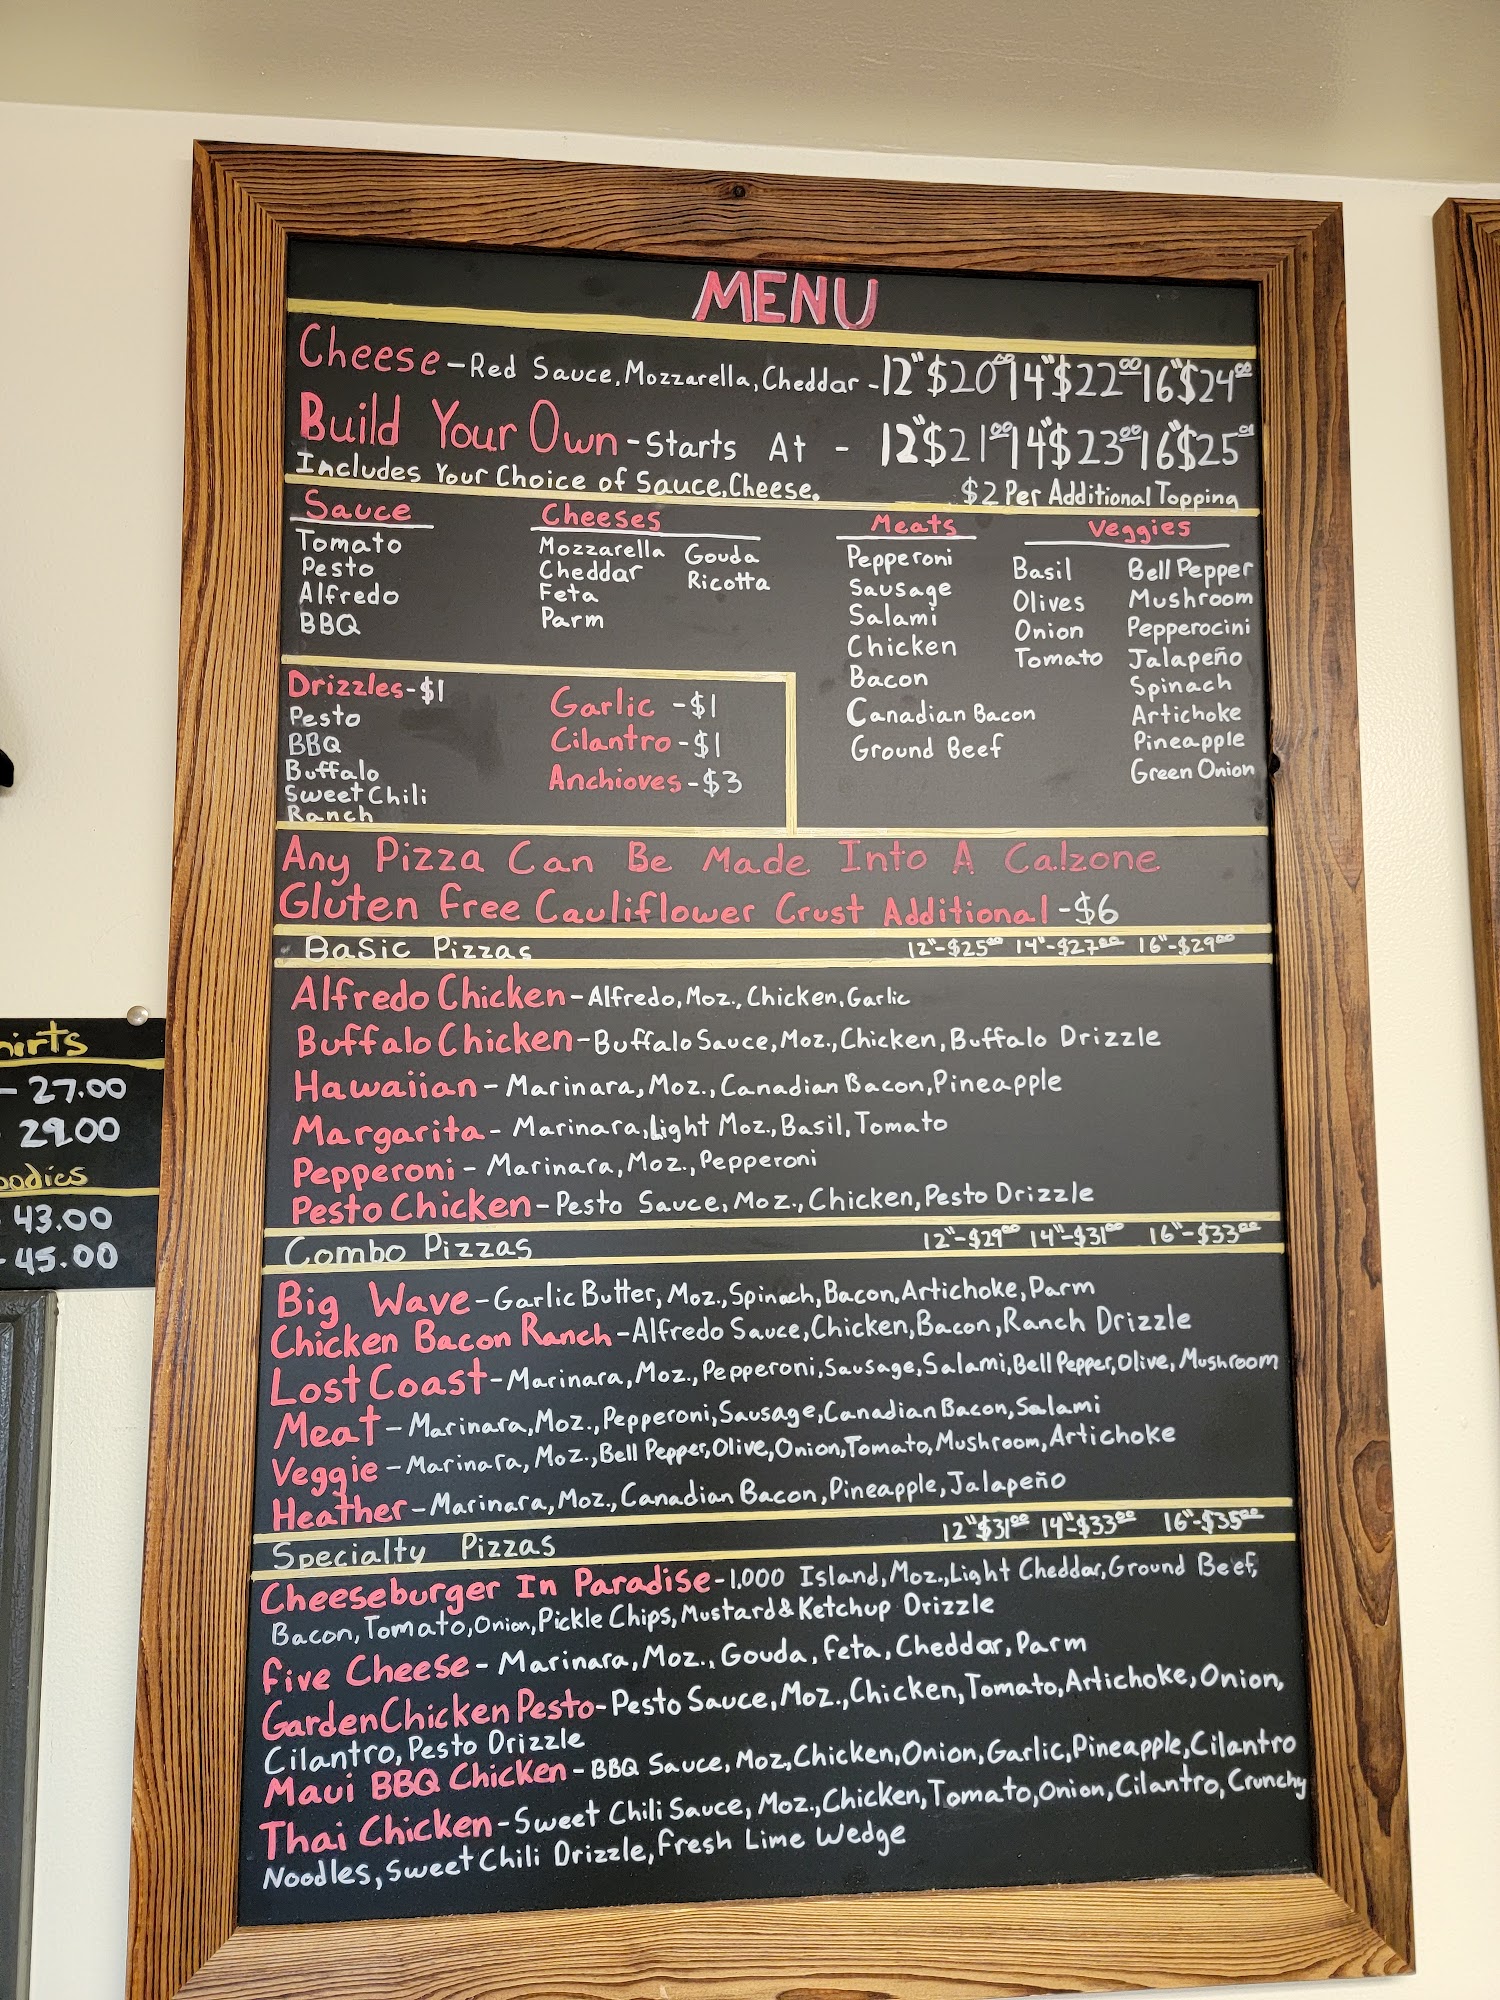 MENU
Cheese - Red Sauce, Mozzarella, Cheddar - 12" $20.00 14" $22.00 16" $24.00
Build Your Own - Starts At - 12" $21.00 14" $23.00 16" $25.00
Includes Your Choice of Sauce, Cheese. $2 Per Additional Topping
Sauce
Tomato
Pesto
Alfredo
BBQ
Cheeses
Mozzarella Gouda
Cheddar Ricotta
Feta
Parm
Meats
Pepperoni
Sausage
Salami
Chicken
Bacon
Canadian Bacon
Ground Beef
Veggies
Basil Bell Pepper
Olives Mushroom
Onion Pepperocini
Tomato Jalapeño
Spinach
Artichoke
Pineapple
Green Onion
Drizzles - $1
Pesto
BBQ
Buffalo
Sweet Chili
Ranch
Garlic - $1
Cilantro - $1
Anchioves - $3
Any Pizza Can Be Made Into A Calzone
Gluten Free Cauliflower Crust Additional - $6
Basic Pizzas 12"-$25.00 14"-$27.00 16"-$29.00
Alfredo Chicken - Alfredo, Moz., Chicken, Garlic
Buffalo Chicken - Buffalo Sauce, Moz., Chicken, Buffalo Drizzle
Hawaiian - Marinara, Moz., Canadian Bacon, Pineapple
Margarita - Marinara, Light Moz., Basil, Tomato
Pepperoni - Marinara, Moz., Pepperoni
Pesto Chicken - Pesto Sauce, Moz., Chicken, Pesto Drizzle
Combo Pizzas 12"-$29.00 14"-$31.00 16"-$33.00
Big Wave - Garlic Butter, Moz., Spinach, Bacon, Artichoke, Parm
Chicken Bacon Ranch - Alfredo Sauce, Chicken, Bacon, Ranch Drizzle
Lost Coast - Marinara, Moz., Pepperoni, Sausage, Salami, Bell Pepper, Olive, Mushroom
Meat - Marinara, Moz., Pepperoni, Sausage, Canadian Bacon, Salami
Veggie - Marinara, Moz., Bell Pepper, Olive, Onion, Tomato, Mushroom, Artichoke
Heather - Marinara, Moz., Canadian Bacon, Pineapple, Jalapeño
Specialty Pizzas 12" $31.00 14"-$33.00 16"-$35.00
Cheeseburger In Paradise - 1,000 Island, Moz., Light Cheddar, Ground Beef,
Bacon, Tomato, Onion, Pickle Chips, Mustard & Ketchup Drizzle
Five Cheese - Marinara, Moz., Gouda, Feta, Cheddar, Parm
Garden Chicken Pesto - Pesto Sauce, Moz., Chicken, Tomato, Artichoke, Onion,
Cilantro, Pesto Drizzle
Maui BBQ Chicken - BBQ Sauce, Moz, Chicken, Onion, Garlic, Pineapple, Cilantro
Thai Chicken - Sweet Chili Sauce, Moz., Chicken, Tomato, Onion, Cilantro, Crunchy
Noodles, Sweet Chili Drizzle, Fresh Lime Wedge
- 27.00
29.00
43.00
- 45.00